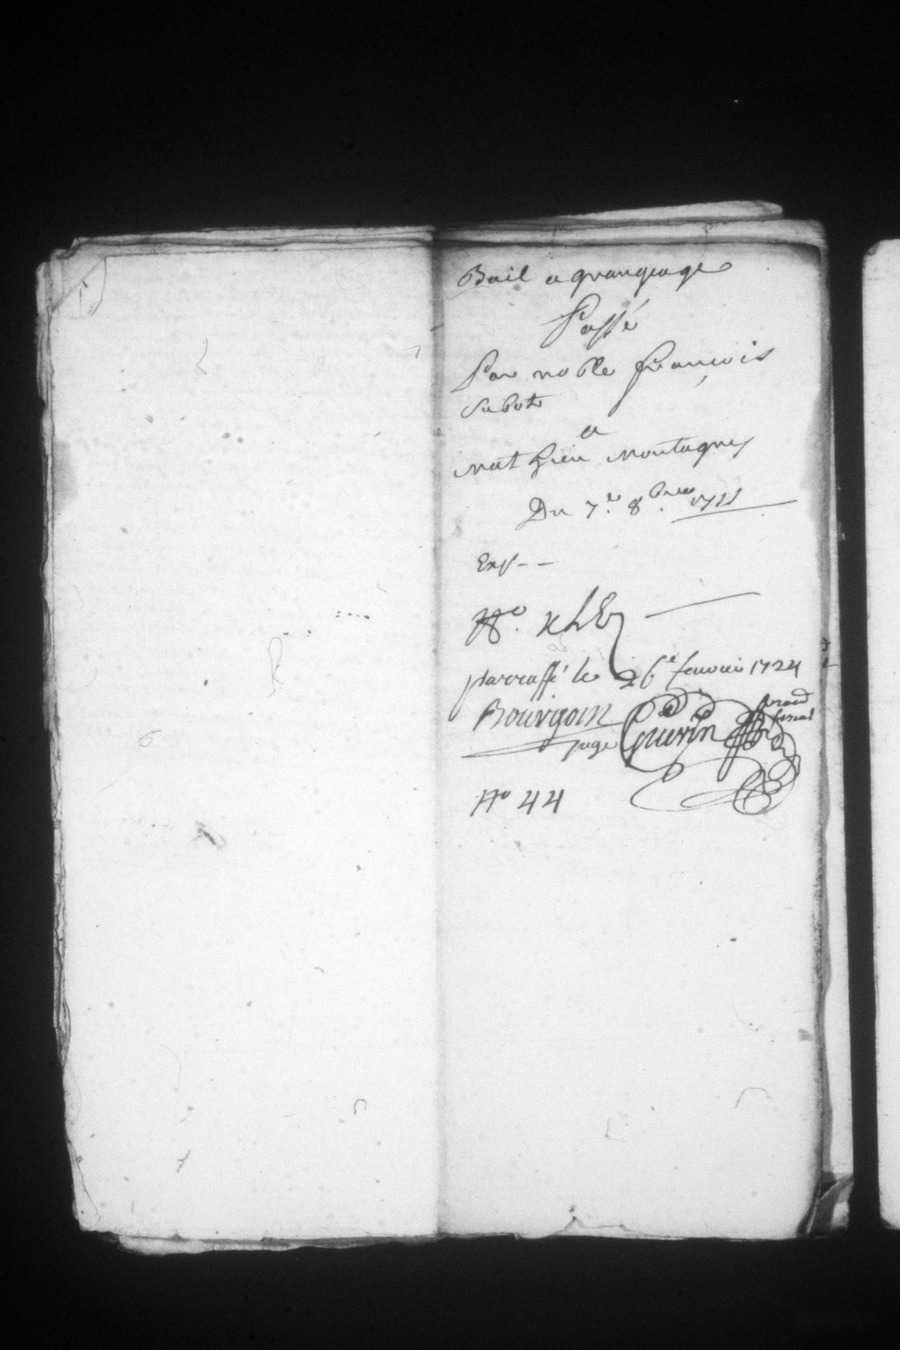 Bail a grangeage
Passé
Par noble françois
Sabot
a
mathieu montagnes
Du 7.e 8.bre 1711
Exp--
parraffé le 26e feuvrié 1724
Bourgoin
juge Guerin
No 44